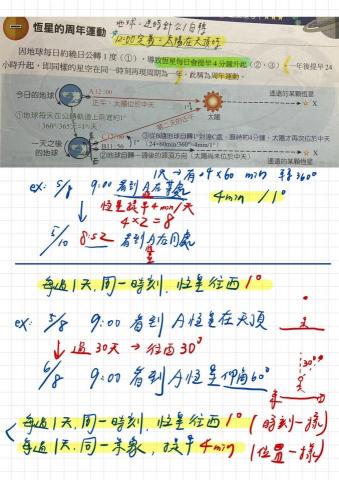 恆星的周年運動
地球:逆時針公/自轉
12:00定義:太陽在天頂
因地球每日約繞日公轉 1 度(①),導致恆星每日會提早 4 分鐘升起(②、③),一年後提早 24
小時升起,即同樣的星空在同一時刻再現周期為一年,此稱為周年運動。
今日的地球
A 12:00
正午,太陽位於中天
太陽
遙遠的某顆恆星
X
①地球每天在公轉軌道上前進約1°
360°/365天≒1°/天
第二天的正午
一天之後
的地球
C 12:00
B 11:56
③從B隨地球自轉1°到達C處,需時約4分鐘,太陽才再次位於中天
(24×60min/360°=4min/1°)
②地球自轉一圈後的源頭方向(太陽尚未位於中天)
遙遠的某顆恆星
X
1天→有24×60 min 轉360°
4min /1°
ex: 5/8 9:00 看到A在某處
恆星提早4min/天
4×2=8
5/10 8:52 看到A在同處
每過1天,同一時刻,恆星往西1°
ex: 5/8 9:00 看到A恆星在天頂
過30天→往西30°
6/8 9:00 看到A恆星仰角60°
30°
每過1天,同一時刻,恆星往西1° (時刻一樣)
每過1天,同一景象,提早4min (位置一樣)